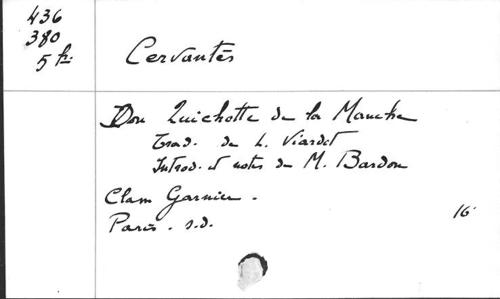 436
380
5
Cervantès
Don Quichotte de la Manche
Trad. de L. Viardot
Introd. et notes de M. Bardon
Class Garnier.
Paris. s.d.
16º